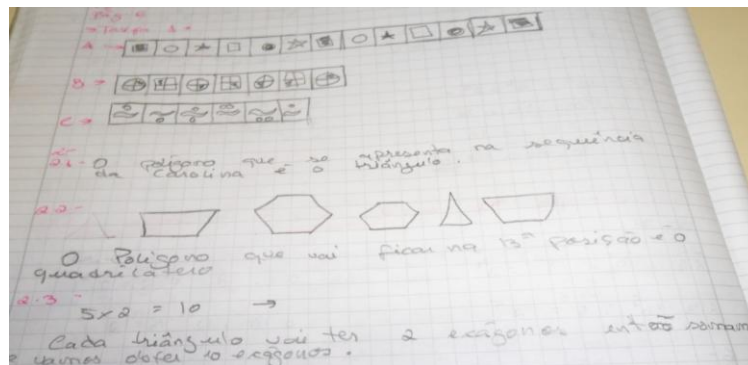 pág 6
→ Tarefa 1 -
A →
B →
C →
2.1 - O polígono que se apresenta na sequência
da Carolina é o triângulo.
2.2 -
O Poligono que vai ficar na 13ª posição é o
quadrilátero
2.3 -
5x2 = 10 →
Cada triângulo vai ter 2 exágonos então somam
e vamos obter 10 exágonos.